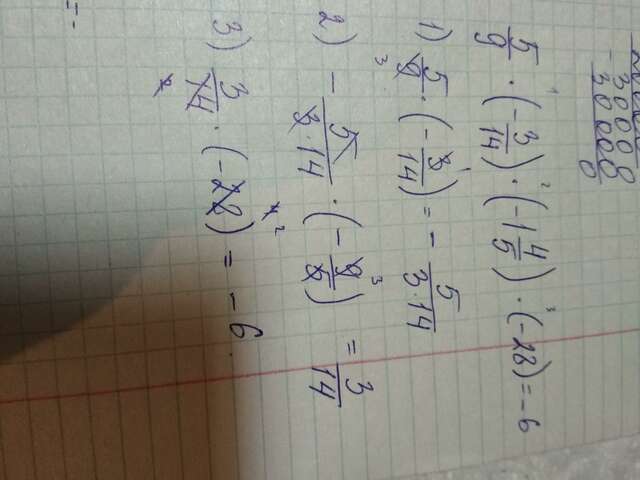 3000
30000
0
5/9 · (-3/14) · (-1 4/5) · (-28) = -6
1) 5/9 · (-3/14) = - 5/3·14
2) - 5/3·14 · (-9/5) = 3/14
3) 3/14 · (-28) = -6